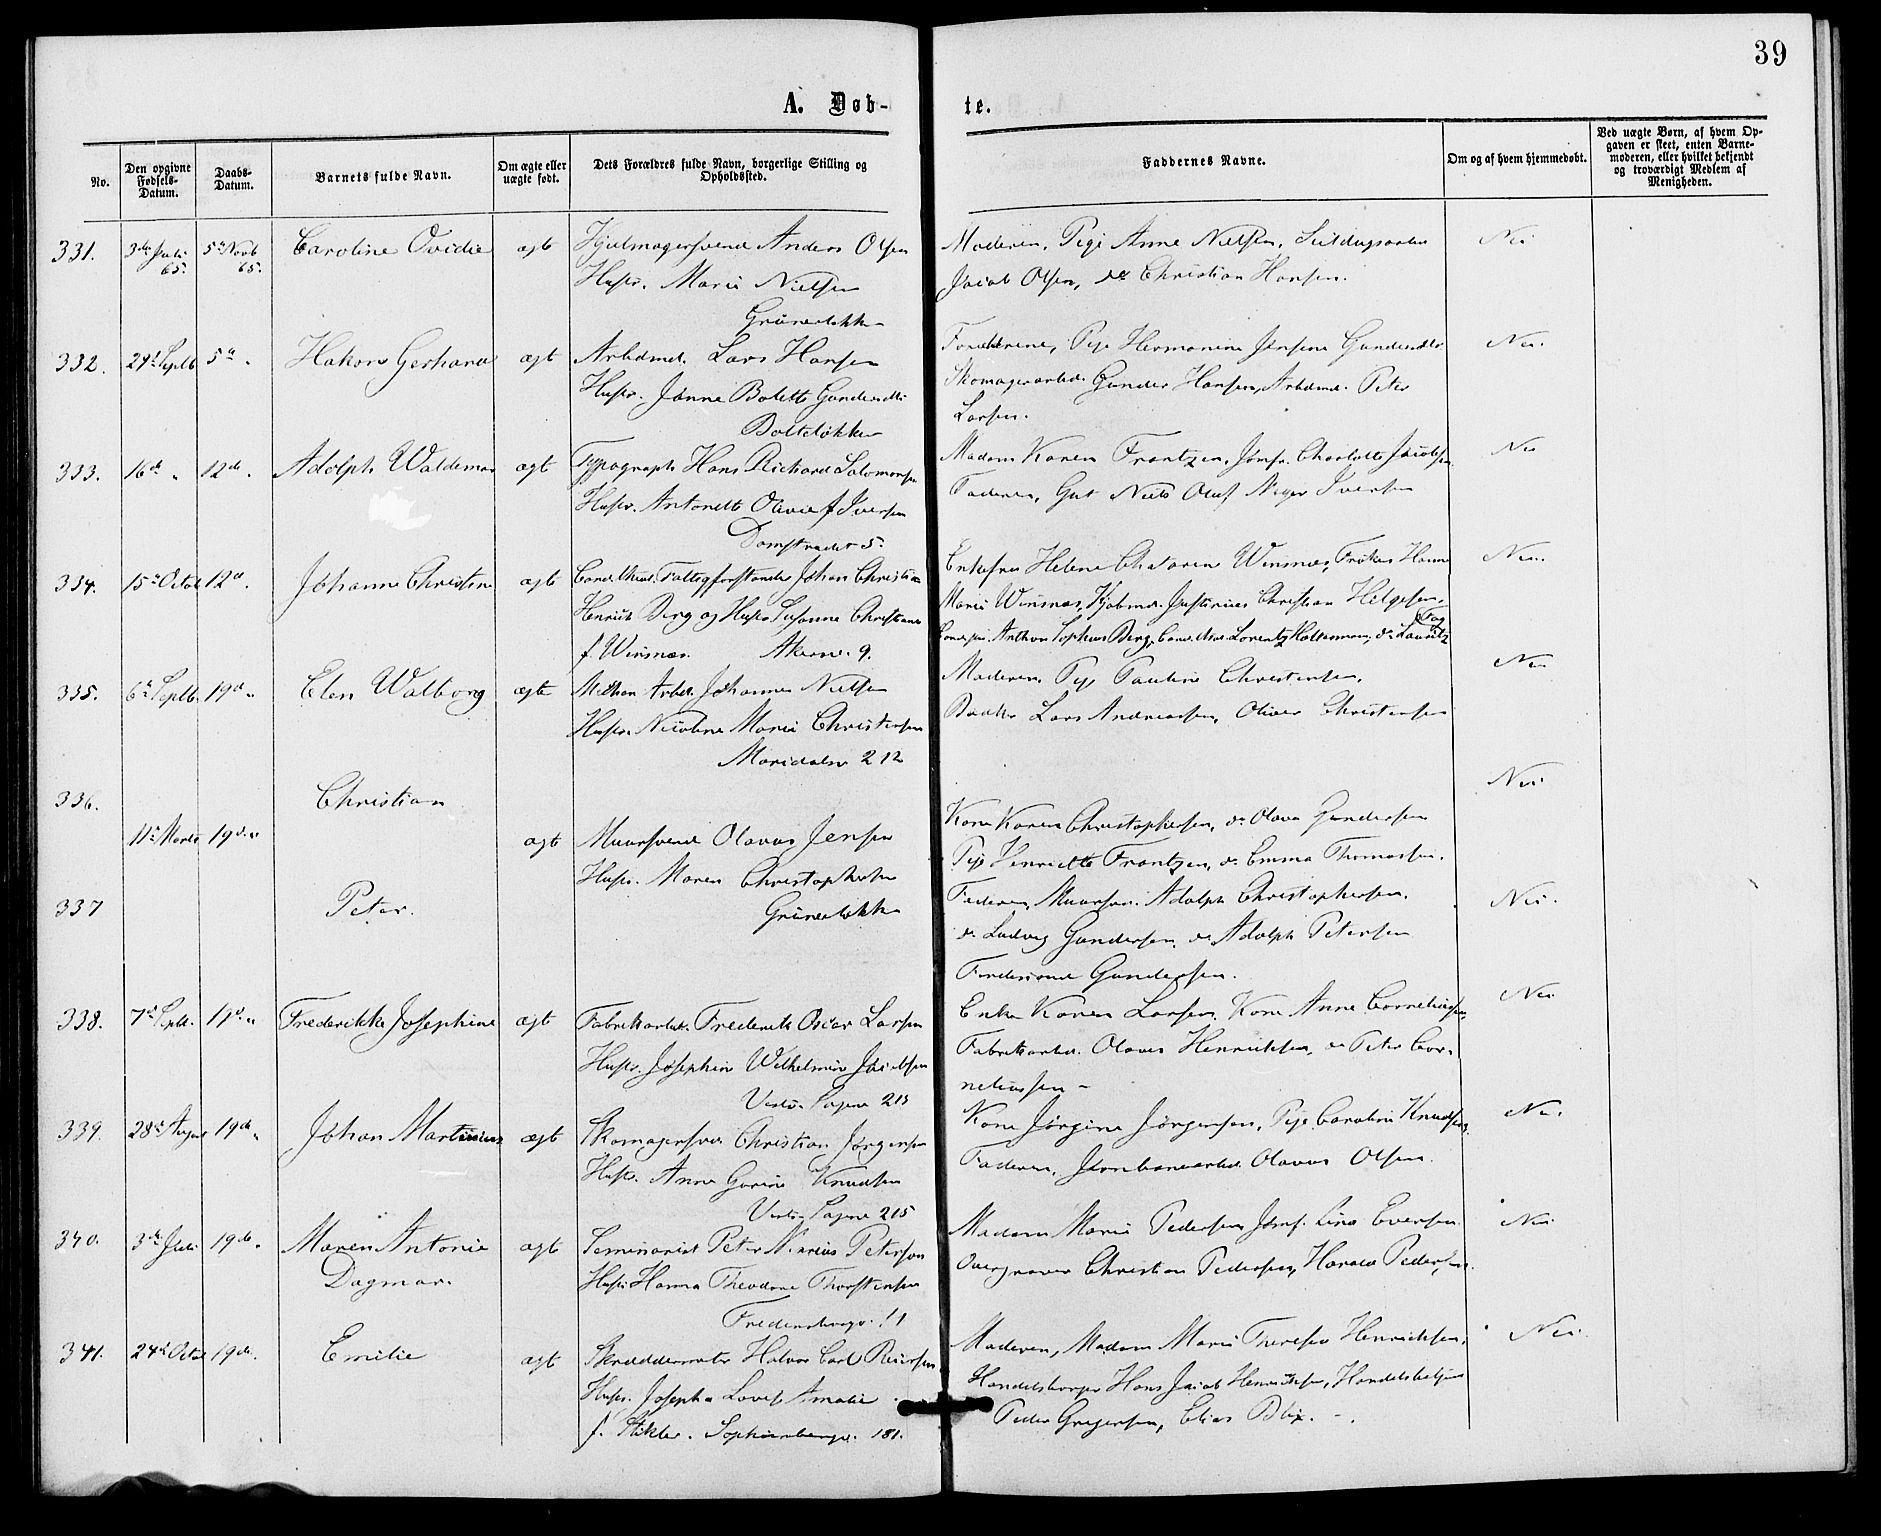 39
A. Døb-
te.
No.
Den opgivne Fødsels-Datum.
Daabs-Datum.
Barnets fulde Navn.
Om ægte eller uægte født.
Dets Forældres fulde Navn, borgerlige Stilling og Opholdssted.
Faddernes Navne.
Om og af hvem hjemmedøbt.
Ved uægte Børn, af hvem Op-
gaven er skeet, enten Barne-
moderen, eller hvilket bekjendt
og troværdigt Medlem af
Menigheden.
331. 3de Juli 65. 5te Novb 65. Caroline Ovidie ægt Hjulmagersvend Anders Olsen
Hustr. Marie Nielsen
Grünerløkken
Moderen, Pige Anne Nielsen, Seildugsarber
Jacob Olsen, do Christian Hansen.
Nei
332. 29de Septb 5te " Hakon Gerhard ægt Arbdmd. Lars Hansen
Hustr. Jønne Bolette Gundersdtr
Bolteløkken
Forældrene, Pige Hermanine Jensine Gundersdtr
Skomagerarbd. Gunder Hansen, Arbdmd. Peter
Larsen.
Nei.
333. 16de " 12de " Adolph Waldemar ægt Typograph Hans Richard Salomonsen
Hustr. Antonette Olivie f Iversen
Damstrædet 5.
Madam Karen Frantzen, Jomfr. Charlotte Jacobsen
Faderen, Gut Niels Oluf Iversen
Nei
334. 15de Octob 12te " Johanne Christine ægt Cand. theol. Fattigforstander Johan Christian
Henrich Berg og Hustr Susanne Christiane
f. Winsnæs. Akersv. 9.
Enkefru Helene Winsnæs, Frøken Hanne
Marie Winsnæs, Kjøbmd. Justinius Christian Helgesen,
Anthon Sophus Berg, Cand. Lorentz do Lauritz
Nei.
335. 6te Septb. 19de " Elen Walborg ægte Mekan. Arbd. Johannes Nielsen
Hustr. Nicoline Marie Christensen
Maridalsv 212
Moderen, Pige Pauline Christensen,
Lars Andreassen, Oliver Christensen
Nei
336. Christian
Nei
11te Marts 19de " ægt Muursvend Olavus Jensen
Hustr. Maren Christophersen
Grünerløkken
337 Peter.
Kone Karen Christophersen, do Olava Gundersen
Pige Henriette Frantzen, do Emma Thomassen.
Faderen, Muursv. Adolph Christophersen.
do Ludvig Gundersen, do Adolph Petersen
Ferdinand Gundersen.
Nei.
338. 7de Septb. 19de " Frederikke Josephine ægt Fabrikarbdr. Frederik Oscar Larsen
Hustr. Josephine Wilhelmine Jacobsen
Vestre Sagene 215
Enke Karen Larsen, Kone Anne Corneliussen,
Fabrikarbd. Olaves Henriksen, do Peter Cor-
neliussen -
Nei
339. 28de August 19de " Johan Martinius ægt Skomagersvd. Christian Jørgensen
Hustr. Anne Gurine Knudsen
Vestre Sagene 215
Kone Jørgine Jørgensen, Pige Caroline Knudsen.
Faderen, Jernbanearbd. Olavus Olsen.
Nei.
340. 3de Juli 19de " Maren Antonie
Dagmar.
ægt Seminarist Peter Peterson
Hustr Hanna Theodora Thorstensen
Fredensborgv. 11
Madam Marie Pedersen, Jomf. Lina Eversen
Christian Pedersen, Harald Pedersen.
Nei
341. 24de Octob 19de. Emilie ægt Skræddermster Halvor Carl Reiersen
Hustr. Josepha Lovise Amalie
f. Sophienbergv. 181.
Moderen, Madam Marie Therese Henriksen,
Handelsborger Hans Jacob Henriksen, Handelsbetjent
Peder Gregersen, Elias Blix. -.
Nei.